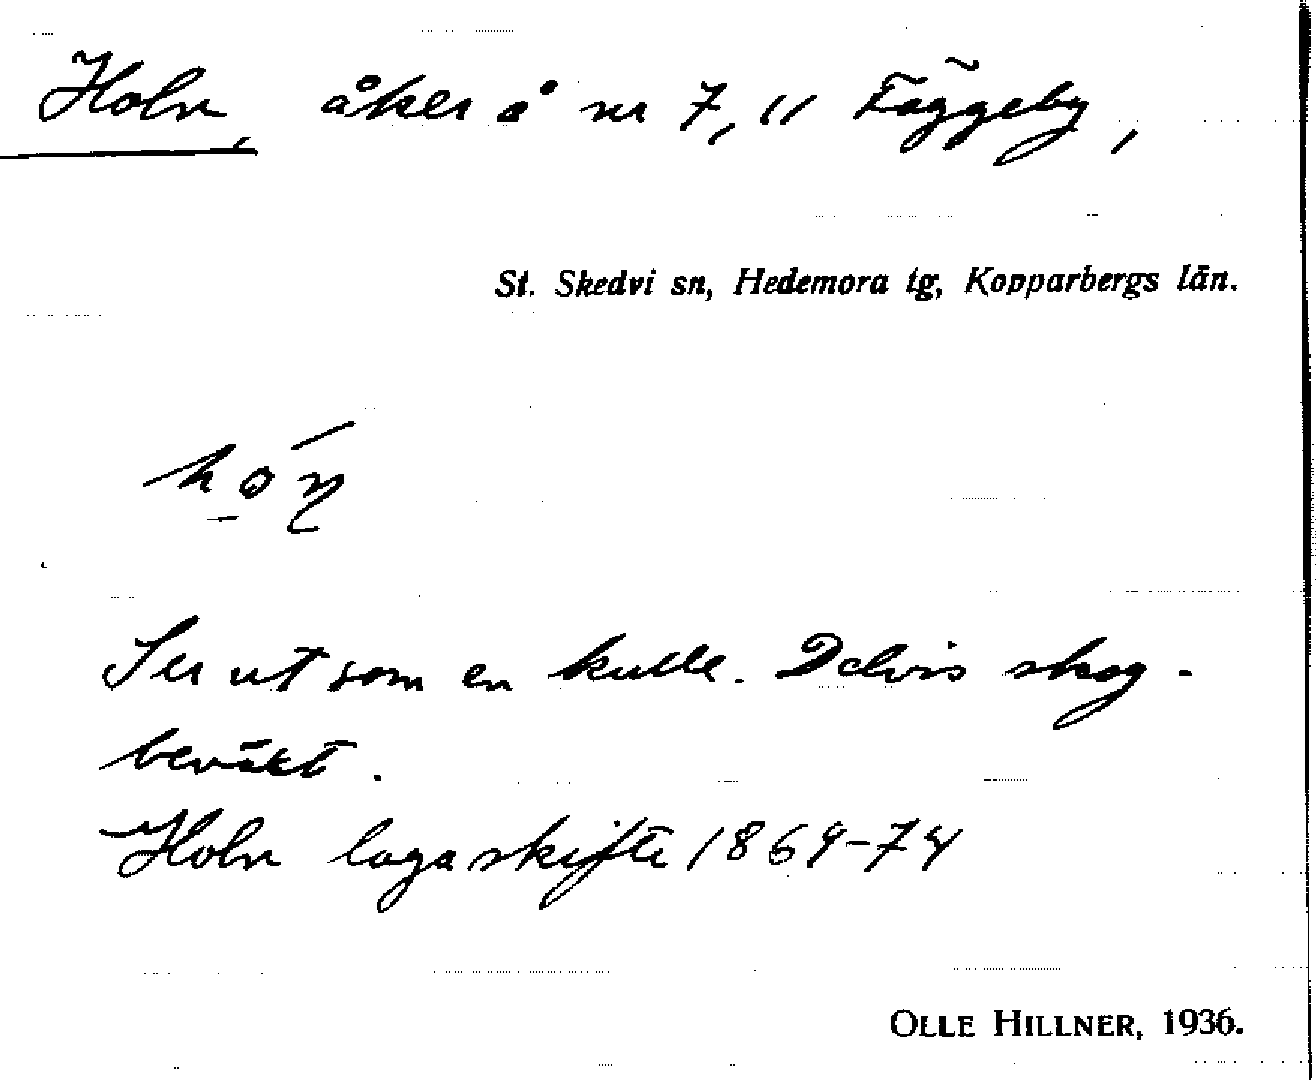 Holn, åker å nr 7, 11 Fäggeby,
St. Skedvi sn, Hedemora tg, Kopparbergs län.
Ser ut som en kulle. Delvis skog-
beväxt.
Holn laga skifte 1869-74
OLLE HILLNER, 1936.